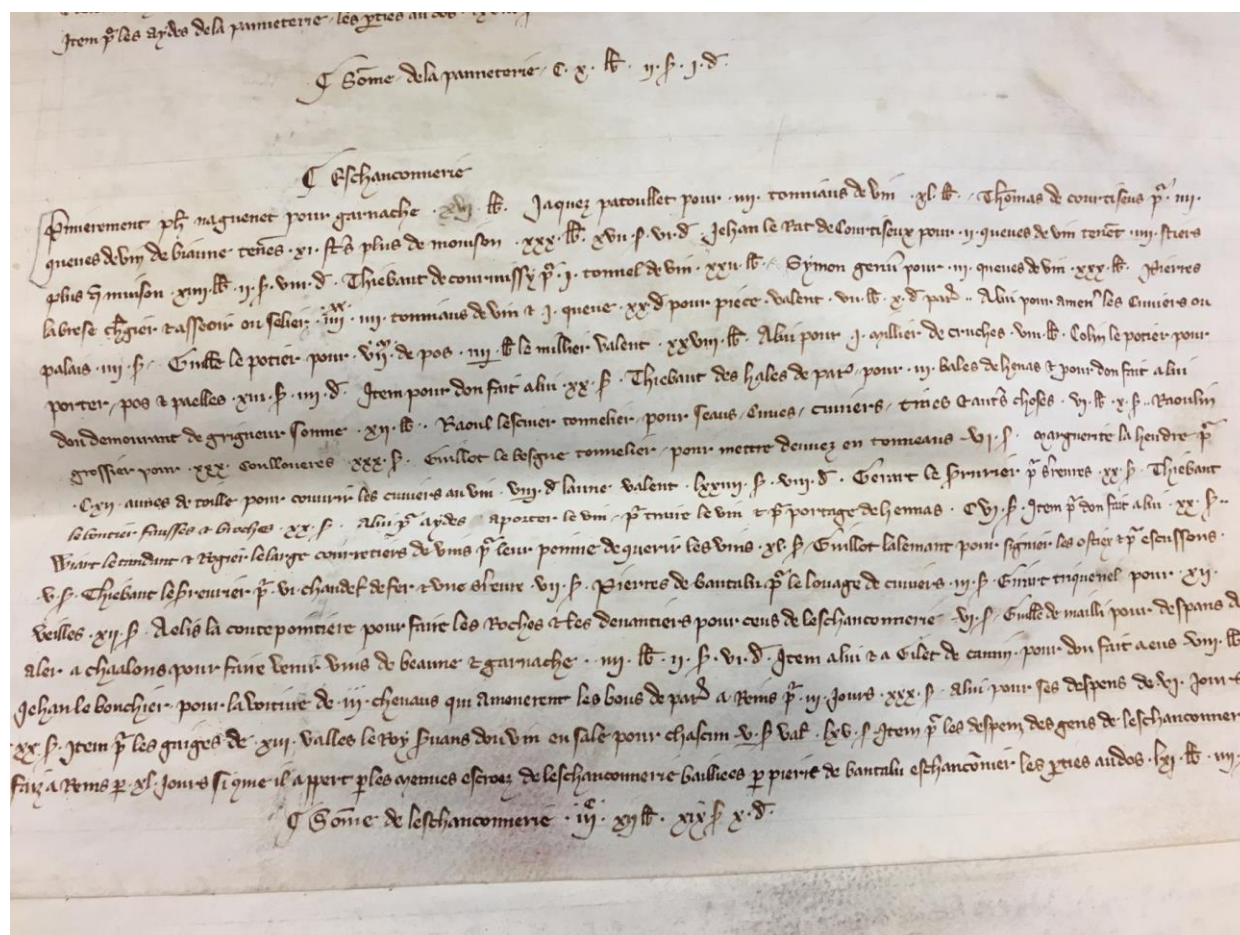 Item pͬ les aydes dela panneterie · les ꝑties au dos ·
₵ Som̄e dela panneterie · C · x · lb · ii · s · i · d ·
₵ Eschanconnerie
Pͥmierement ph̄ naguenet pour garnache · xvi · lb · Jaquez patoullet pour · iiii · tonniaus de vin · xl · lb · Thomas de courtiseus pͬ · iiii ·
queues de vin de biaune ten̄es · xi · st̄s plus de moiison · xxx · lb · xvii · s · vi · d · Jehan le Rat de Courtiseux pour · ii · queues de vin tenēt · iiii · stiers
plus q̄ muison · xiii · lb · ii · s · viii · d · Thiebaut de cormissy pͬ · i · tonnel de vin · xxii · lb · Symon pour · iii · queues de vin · xxx · lb · Pierres
labrese ch̄gier et asseoir ou selier · iiiiˣˣ · iiii · tonniaus de vin et · i · queue · xx · d pour piece · valent · vii · lb · x · d par̄ · A lui pour amen̄ les cuviers ou
palais · iiii · s · Guill̄e le potier pour · viiᵐ · de pos · iiii · lb le millier valent · xxviii · lb · A lui pour · i · millier de cruches · viii · lb · Colin le potier pour
porter · pos et paelles · xiii · s · iiii · d · Item pour don fait a lui · xx · s · Thiebaut des hales de par̄ · pour · iii · bales de henas et pour don fait a lui
don demourant de grigneur somme · xii · lb · Raoul lescuier tonnelier · pour seaus · Cuves · cuviers · tines et autr̄s choses · vi · lb · x · s · Raoulin
grossier pour · xxx · coulloueres · xxx · s · Guillot le besgue tonnelier · pour mettre deuuez en tonneaus · vi · s · marguerite la hendre pͬ
· Cxii · aunes de toille pour couvrir les cuviers au vin · viii · d laune valent · lxxiiii · s · viii · d · Gerart le serurier pͬ sereures · xx · s · Thiebaut
le lontier fausses et broches · xx · s · A lui pͬ aydes aporter le vin · pͬ traire le vin et pͬ portage de hennas · Cvi · s · Item pͬ don fait a lui · xx · s ·
Wiart et Rogier lelarge courretiers de vins pͬ leur penne de querir les vins · xl · s · Guillot lalemant pour signier les ostiex et pͬ escussons ·
· v · s · Thiebaut le sereurier pͬ · vi · chandel̄ de fer et une sereure · vii · s · Pierres de bantalu pͬ le louage de cuviers · iii · s · Erart triquenel pour · xii ·
veilles · xii · s · Aelis la coutepointiere pour faire les Roches et les devantiers pour ceus de leschanconnerie · vi · s · Guill̄e de mailli pour despans d
aler a chaalons pour faire venir vins de beaune et garnache · iiii · lb · ii · s · vi · d · Item a lui et a Gilet de · pour don fait a eus · viii · lb
Jehan le bouchier pour la voiture de · iii · chevaus qui amenerent les bous de par̄ a Reins pͬ · iii · Jours · xxx · s · A lui pour ses despens de · vi · Jours
xx · s · Item pͬ les gaiges de · xiii · valles le Roy s̄vans dou vin en sale pour chascun · v · s val̄ · lxv · s · Item pͬ les despens des gens de leschanconner
faiz a Reins ꝑ · xl · Jours si que il appert ꝑ les menues escroez de leschanconnerie bailliees ꝑ pierre de bantalu eschancōnier les ꝑties au dos · lxi · lb · iiii ·
₵ Som̄e de leschanconnerie · iiiᶜ · xii lb · xix s x · d ·